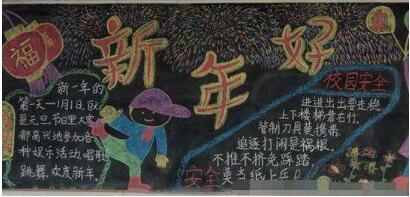 福
新年好
新一年的
第一天一月1日,欧
是元旦,节日里大家
都高兴地参加各
种娱乐活动,唱歌
跳舞,欢度新年。
校园安全
进进出出要走稳,
上下楼梯靠右行,
管制刀具莫携带,
追逐打闹是祸根,
不推不挤免踩踏,
安全要当纸上兵!